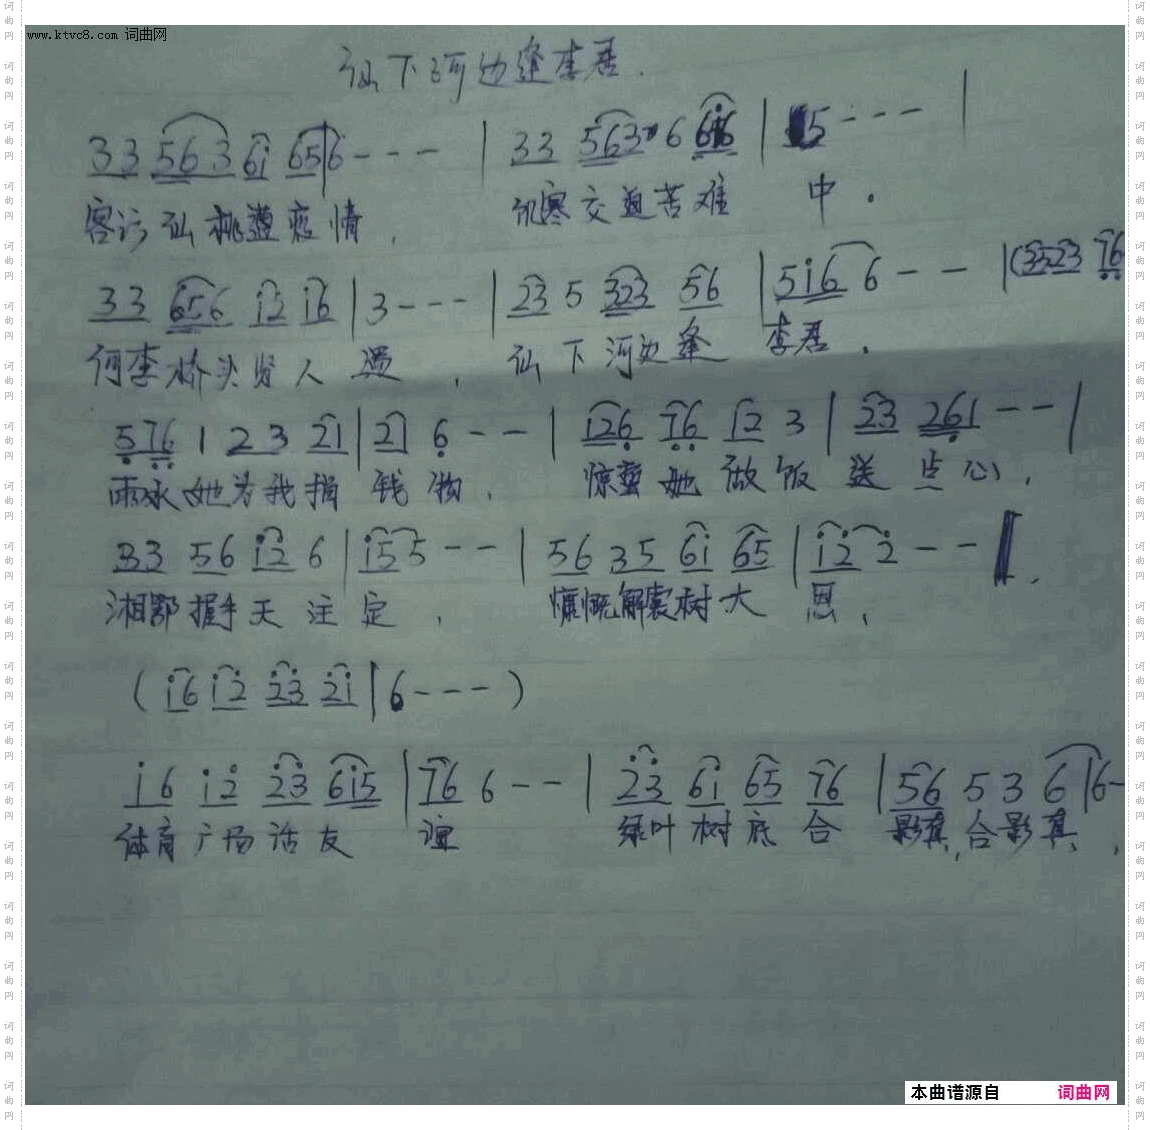 www.ktvc8.com 词曲网
仙下河边逢李君.
33 563 6i 65|6 - - - | 33 563 6 6i6 | 5 - - - |
客访仙桃遭疫情, 饥寒交迫苦难 中.
33 656 i2 i6 | 3 - - - | 23 5 323 56 | 5i6 6 - - | (3523 76
何李桥头贤人遇, 仙下河边逢 李君.
576 1 2 3 21 | 21 6 - - | 126 76 12 3 | 23 261 - - |
她为我捐 钱物. 她做饭送点心.
33 56 i2 6 | i55 - - | 56 35 6i 65 | i2 2 - - ‖.
湘鄂握手天注定. 慷慨解囊树大 恩,
(i6 i2 23 2i | 6 - - - )
i6 i2 23 6i5 | 76 6 - - | 23 6i 65 76 | 56 5 3 6 | 6 -
体育广场话友 谊 绿叶树底合 影真,合影真,
本曲谱源自 词曲网